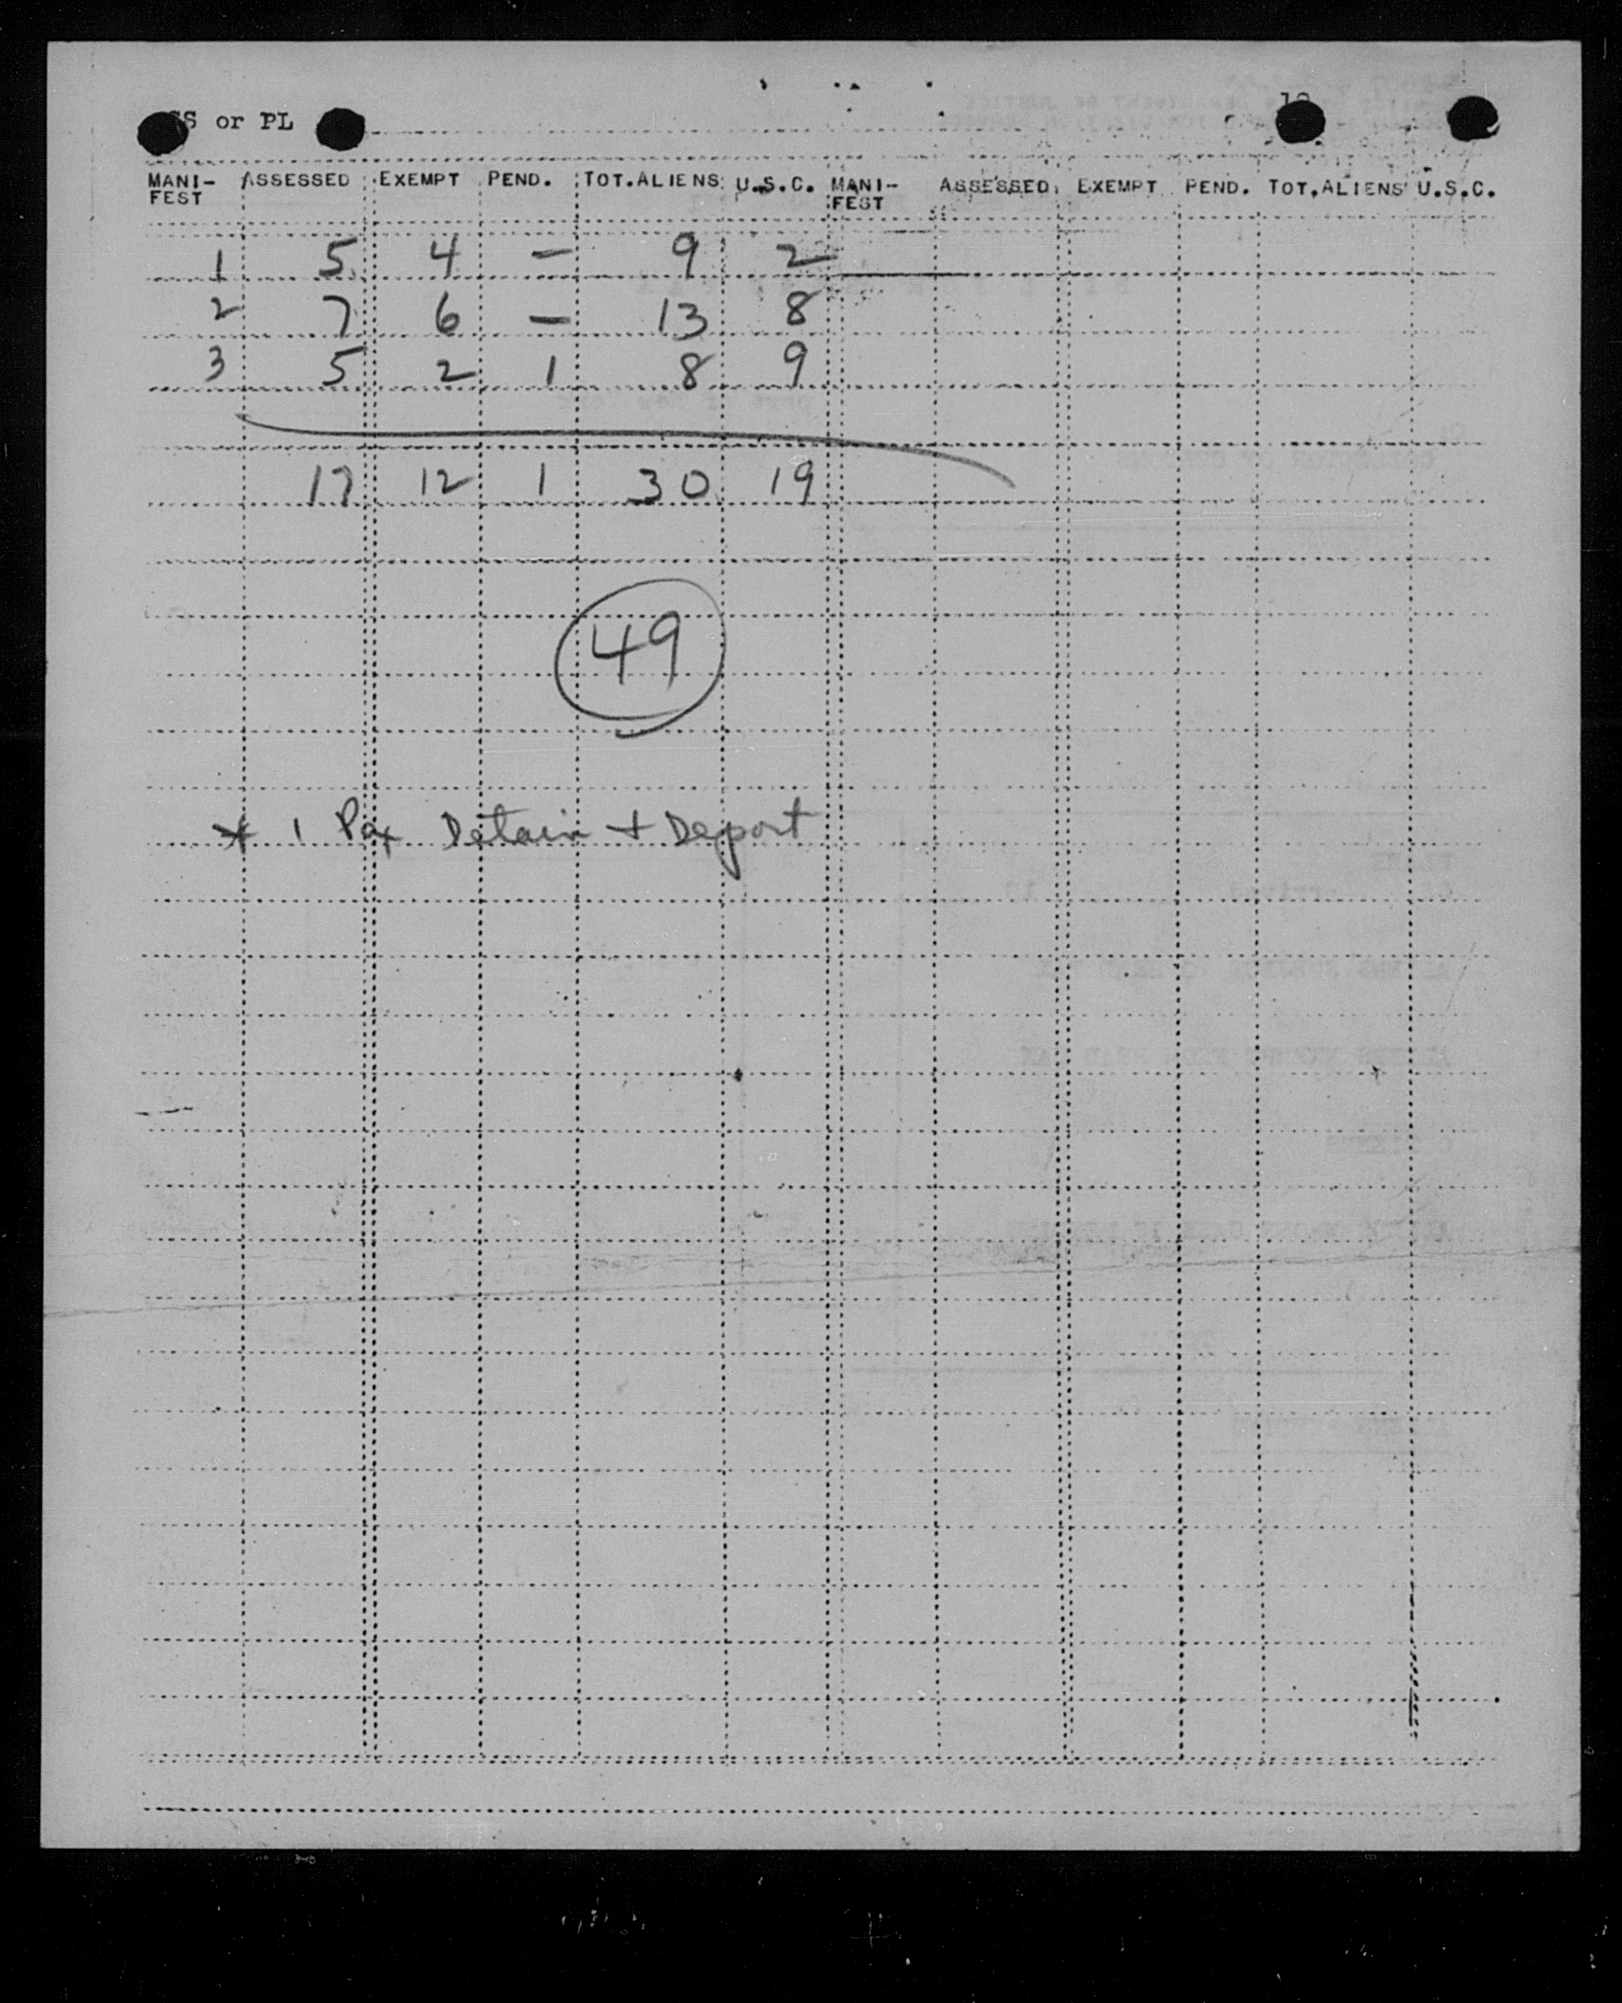 SS or PL 19
MANI-FEST ASSESSED EXEMPT PEND. TOT.ALIENS U.S.C. MANI-FEST ASSESSED EXEMPT PEND. TOT.ALIENS U.S.C.
1 5 4 - 9 2
2 7 6 - 13 8
3 5 2 1 8 9
17 12 1 30 19
49
* 1 Pax Detain + Deport